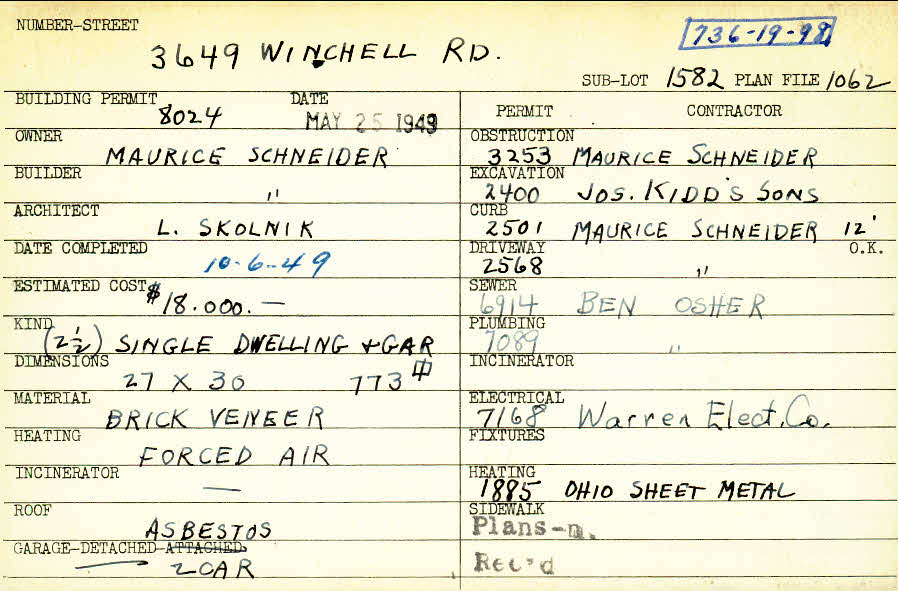 NUMBER-STREET
3649 WINCHELL RD.
736-19-98
SUB-LOT 1582 PLAN FILE 1062
BUILDING PERMIT 8024 DATE MAY 25 1949
OWNER MAURICE SCHNEIDER
BUILDER "
ARCHITECT L. SKOLNIK
DATE COMPLETED 10-6-49
ESTIMATED COST $18.000.—
KIND (2½) SINGLE DWELLING + GAR
DIMENSIONS 27 X 30 773
MATERIAL BRICK VENEER
HEATING FORCED AIR
INCINERATOR —
ROOF ASBESTOS
GARAGE-DETACHED-ATTACHED
2 CAR
PERMIT CONTRACTOR
OBSTRUCTION 3253 MAURICE SCHNEIDER
EXCAVATION 2400 JOS. KIDD'S SONS
CURB 2501 MAURICE SCHNEIDER 12'
DRIVEWAY 2568 " O.K.
SEWER 6914 BEN OSHER
PLUMBING 7089 "
INCINERATOR
ELECTRICAL 7168 Warren Elect. Co.
FIXTURES
HEATING 1885 OHIO SHEET METAL
SIDEWALK
Plans-m.
Rec'd